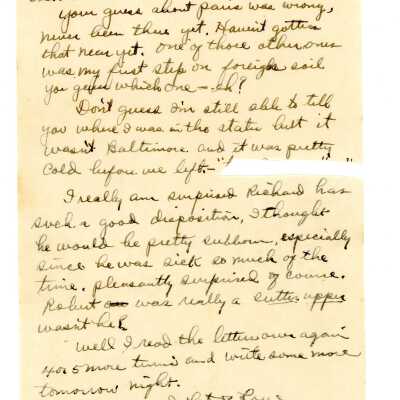 Your guess about paris was wrong,
never been there yet. Haven't gotten
that near yet. One of those other ones
was my first step on foreign soil
you guess which one – eh?
Don't guess I'm still able to tell
you where I was in the states but it
wasn't Baltimore and it was pretty
cold before we left. –
I really am surprised Richard has
such a good disposition, I thought
he would be pretty subborn, especially
since he was sick so much of the
time. pleasantly surprised of course.
Robert was really a
wasn't he?
Well I read the letter over again
4 or 5 more times and write some more
tomorrow night.